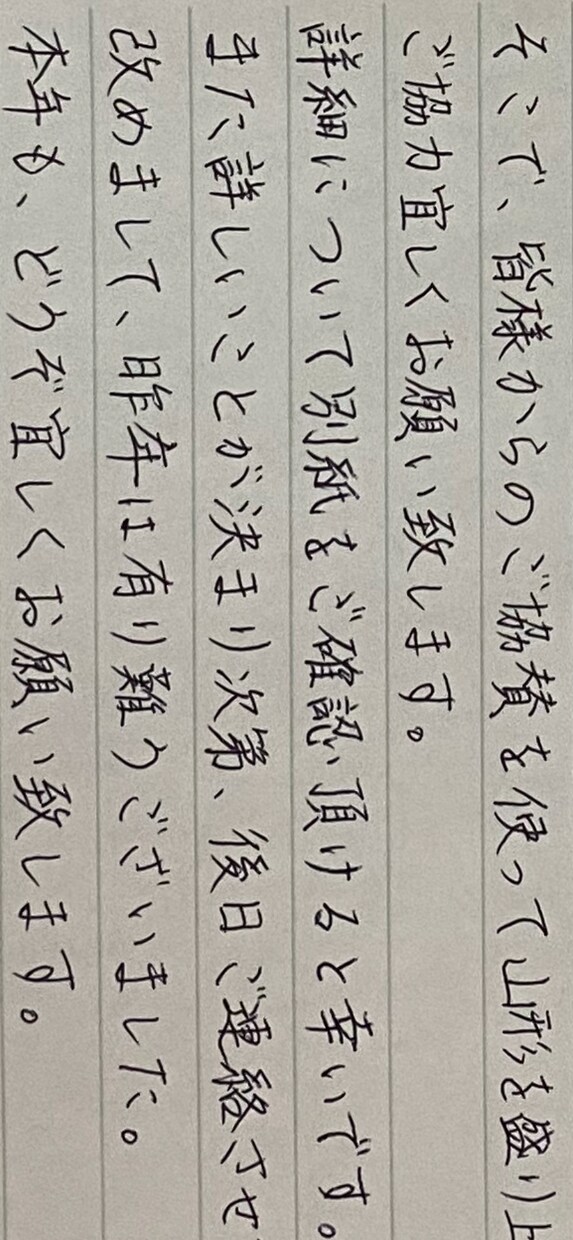 そこで、皆様からのご協賛を使って山形を盛り上
ご協力宜しくお願い致します。
詳細について別紙をご確認頂けると幸いです。
また詳しいことが決まり次第、後日ご連絡させ
改めまして、昨年は有り難うございました。
本年も、どうぞ宜しくお願い致します。